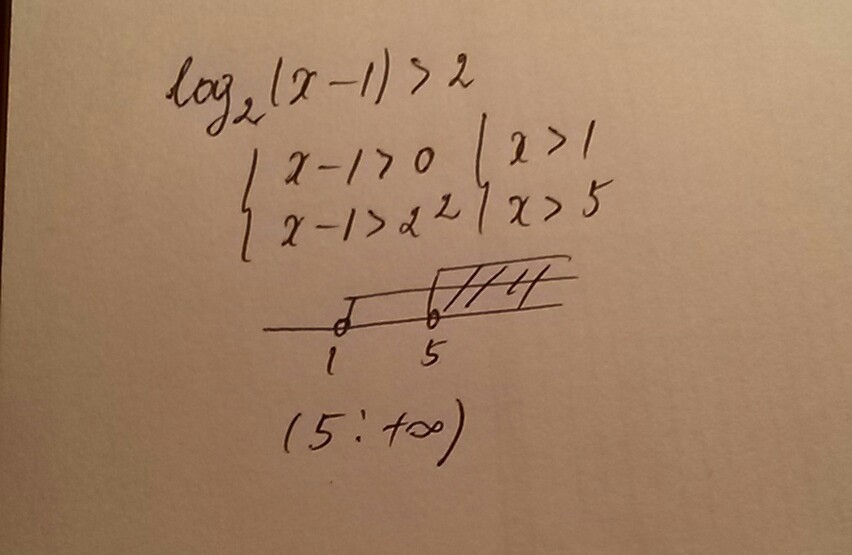 log₂(x-1)>2
{ x-1>0 { x>1
{ x-1>2² { x>5
1 5
(5:+∞)